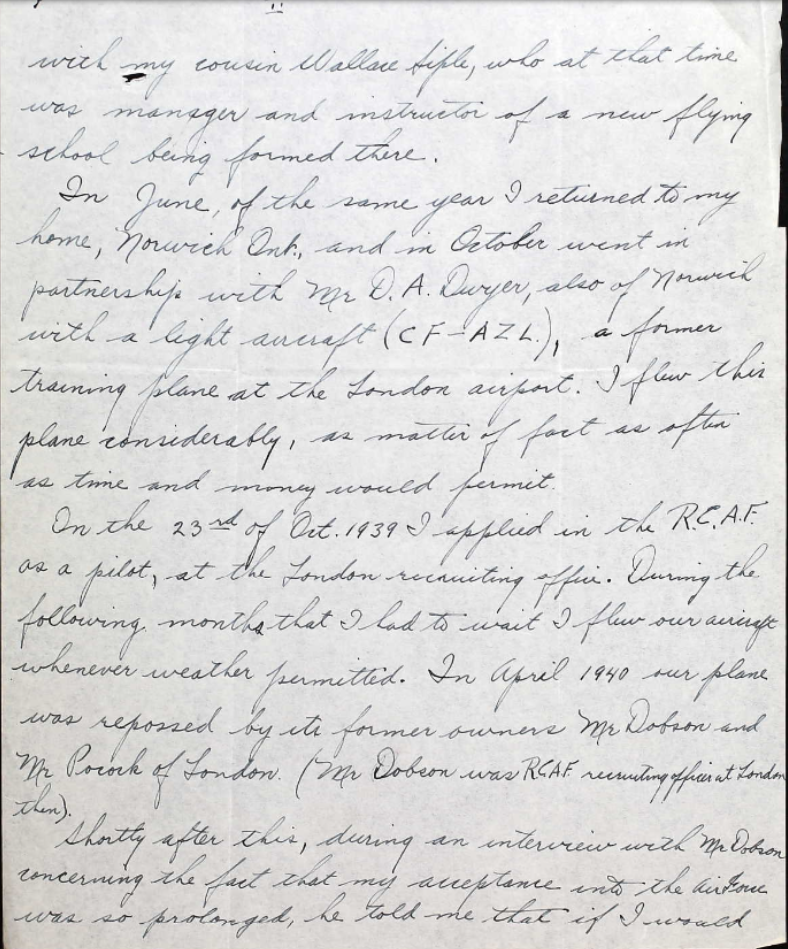 11
with my cousin Wallace Siple, who at that time
was manager and instructor of a new flying
school being formed there.
In June, of the same year I returned to my
home, Norwich Ont., and in October went in
partnership with Mr D. A. Dwyer, also of Norwich
with a light aircraft (CF-AZL.), a former
training plane at the London airport. I flew this
plane considerably, as matter of fact as often
as time and money would permit.
On the 23rd of Oct. 1939 I applied in the R.C.A.F.
as a pilot, at the London recruiting office. During the
following months that I had to wait I flew our aircraft
whenever weather permitted. In April 1940 our plane
was repossed by its former owners Mr Dobson and
Mr Pocock of London. (Mr Dobson was RCAF recruiting officer at London
then).
Shortly after this, during an interview with Mr Dobson
concerning the fact that my acceptance into the Air Force
was so prolonged, he told me that if I would